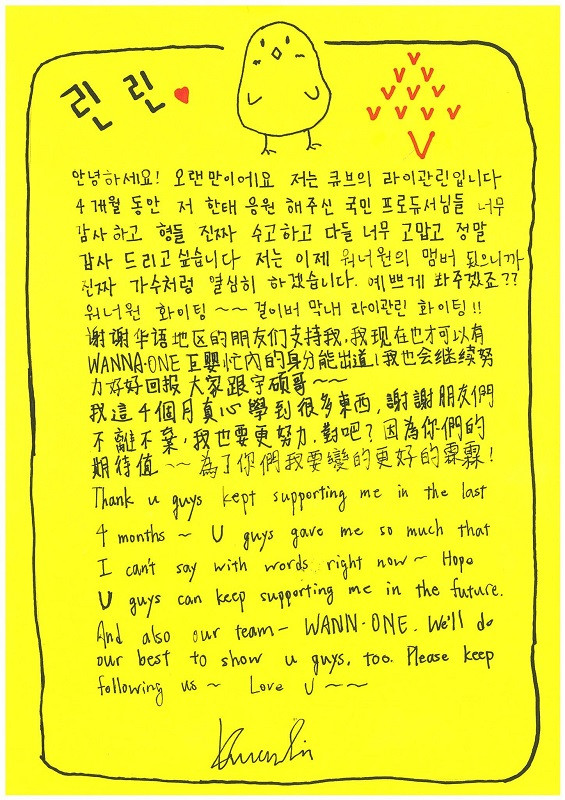 린린
안녕하세요! 오랜만이에요 저는 큐브의 라이관린입니다
4개월 동안 저 한태 응원 해주신 국민 프로듀서님들 너무
감사 하고 형들 진짜 수고하고 다들 너무 고맙고 정말
감사 드리고 싶습니다 저는 이제 워너원의 맴버 됬으니까
진짜 가수처럼 열심히 하겠습니다. 예쁘게 봐주겠죠??
워너원 화이팅 ~~ 걸이버 막내 라이관린 화이팅!!
谢谢华语地区的朋友们支持我,我现在也才可以有
WANNA·ONE 巨婴忙内的身分能出道!我也会继续努
力好好回报大家跟宇硕哥~~
我這4個月真心學到很多東西,謝謝朋友們
不離不棄,我也要更努力.對吧?因為你們的
期待值 ~~ 為了你們我要變的更好的霖霖!
Thank u guys kept supporting me in the last
4 months ~ U guys gave me so much that
I can't say with words right now ~ Hope
U guys can keep supporting me in the future.
And also our team - WANN·ONE. We'll do
our best to show u guys, too. Please keep
following us ~ Love U ~~